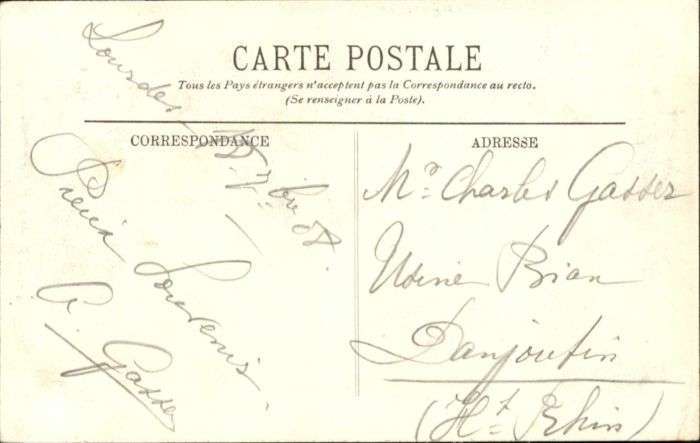 CARTE POSTALE
Tous les Pays étrangers n'acceptent pas la Correspondance au recto.
(Se renseigner à la Poste).
CORRESPONDANCE
Lourdes 15. 7bre 08.
Souvenir,
G. Gasser
ADRESSE
Mr. Charles Gasser
Usine Brian
Danjoutin
(Ht. Rhin)